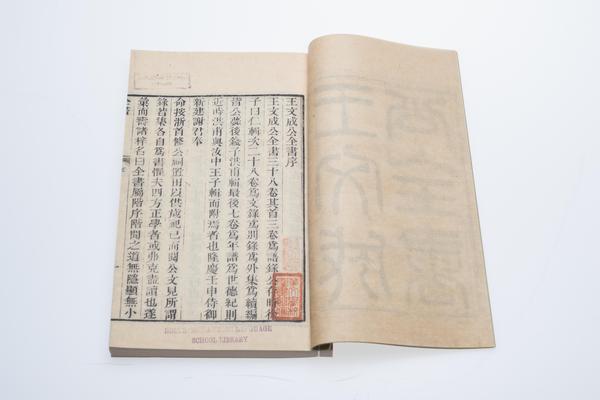 王文成公全書序
王文成公全書三十八卷其首三卷爲語錄公存時徐
子曰仁輯次二十八卷爲文錄爲別錄爲外集爲續編
皆公薨後錢子洪甫輯最後七卷爲年譜爲世德紀則
近時洪甫與汝中王子輯而附焉者也隆慶壬申侍御
新建謝君奉
命按浙首修公祠置田以供歲祀已而閱公文見所謂
錄若集各自爲書懼夫四方正學者或弗克盡讀也遂
彙而壽諸梓名曰全書屬階序階聞之道無隱顯無小
LANGUAGE
SCHOOL LIBRARY
王文成